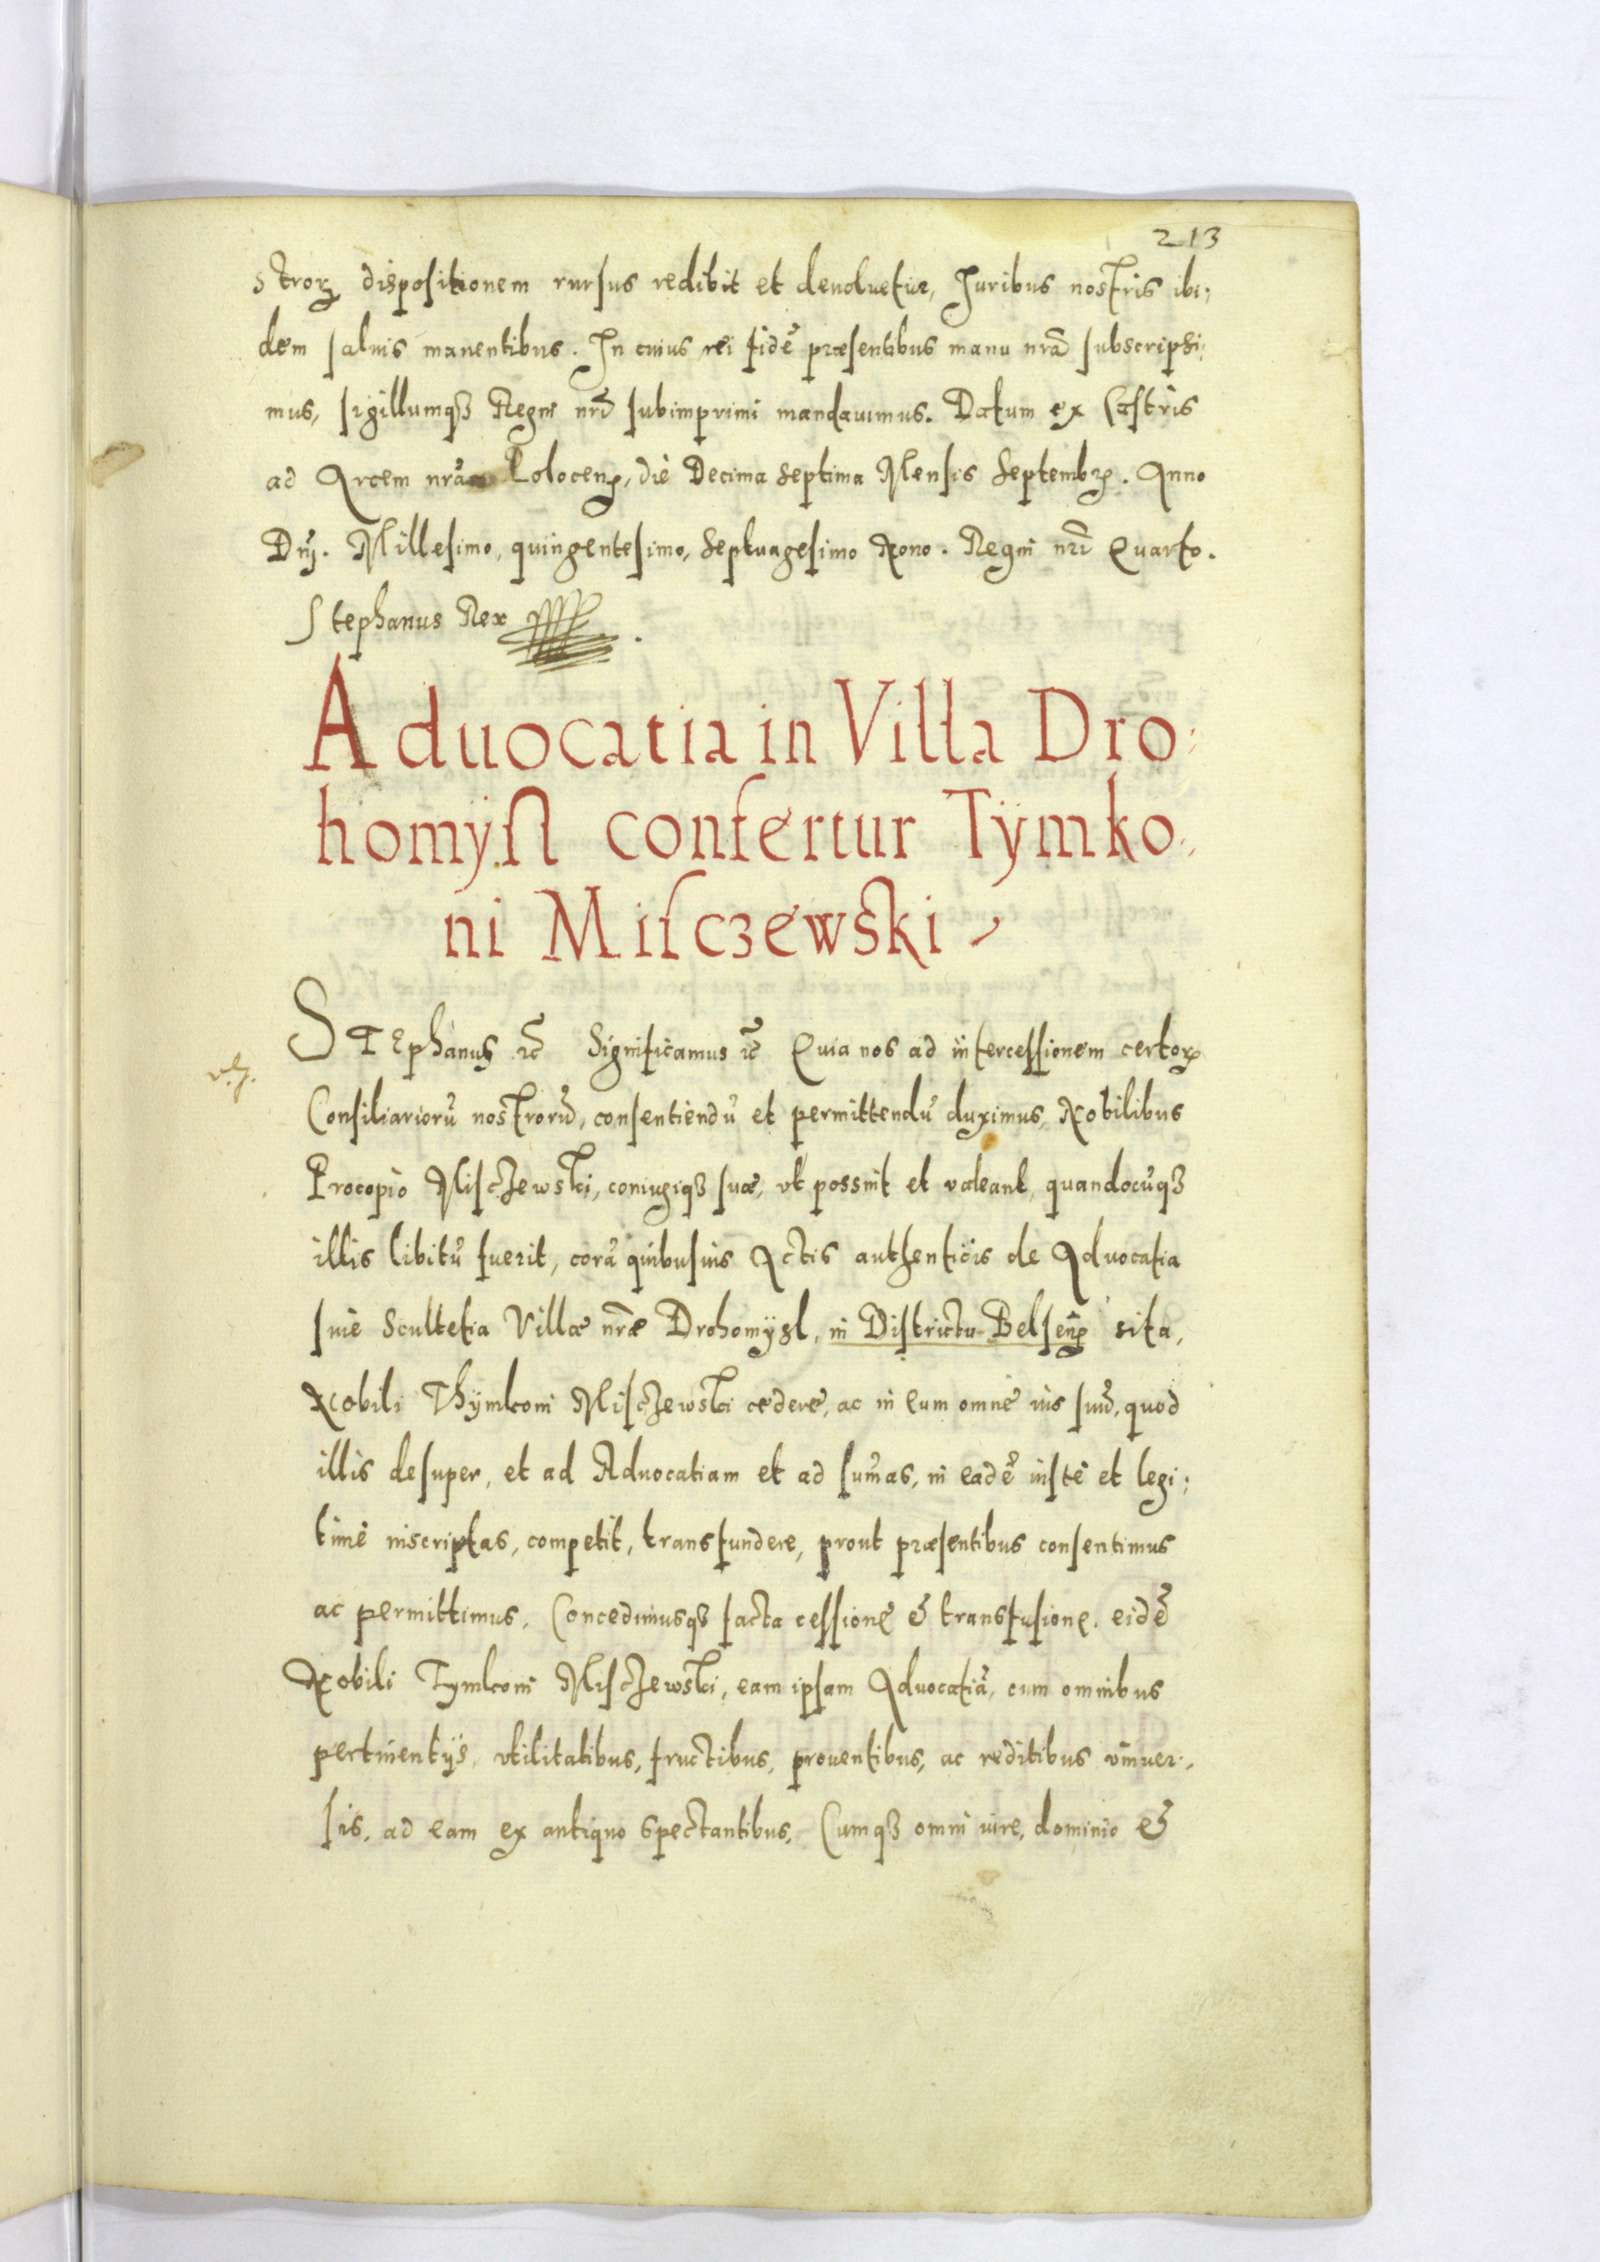 213
stroꝝ dispositionem rursus redibit et deuoluetur, Juribus nostris ibi,
dem saluis manentibus. In cuius rei fidẽ præsentibus manu nrã subscripsi,
mus, sigillumqꝫ Regni nrĩ subimprimi mandauimus. Datum ex Castris
ad Arcem nrãm Polocenꝭ, die Decima Septima Mensis Septembrꝭ. Anno
Dnĩ. Millesimo, quingentesimo, Septuagesimo Nono. Regni nrĩ Quarto.
Stephanus Rex
Aduocatia in Villa Dro,
homysl confertur Tÿmko,
ni Misczewski
STEphanus ꝛc̃ Significamus ꝛc̃ Quia nos ad intercessionem certoꝝ
Consiliariorũ nostrorũ, consentiendũ et permittendũ duximus, Nobilibus
Procopio Misczewski, coniugiqꝫ suæ, vt possint et valeant, quandocũqꝫ
illis libitũ fuerit, corã quibusuis Actis authenticis de Aduocatia
siue Scultetia Villæ nrãe Drohomÿsl, in Districtu Belsenꝭ sita,
Nobili Thÿmkoni Misczewski cedere, ac in eum omne ius suũ, quod
illis desuper, et ad Aduocatiam et ad sum̃as, in eadẽ iustè et legi,
timè inscriptas, competit, transfundere, prout præsentibus consentimus
ac permittimus. Concedimusqꝫ facta cessione & transfusione. eidẽ
Nobili Tymkoni Misczewski, eam ipsam Aduocatiã, cum omnibus
pertinentijs vtilitatibus, fructibus, prouentibus, ac reditibus vniuer,
sis, ad eam ex antiquo spectantibus, Cumqꝫ omni iure, dominio &